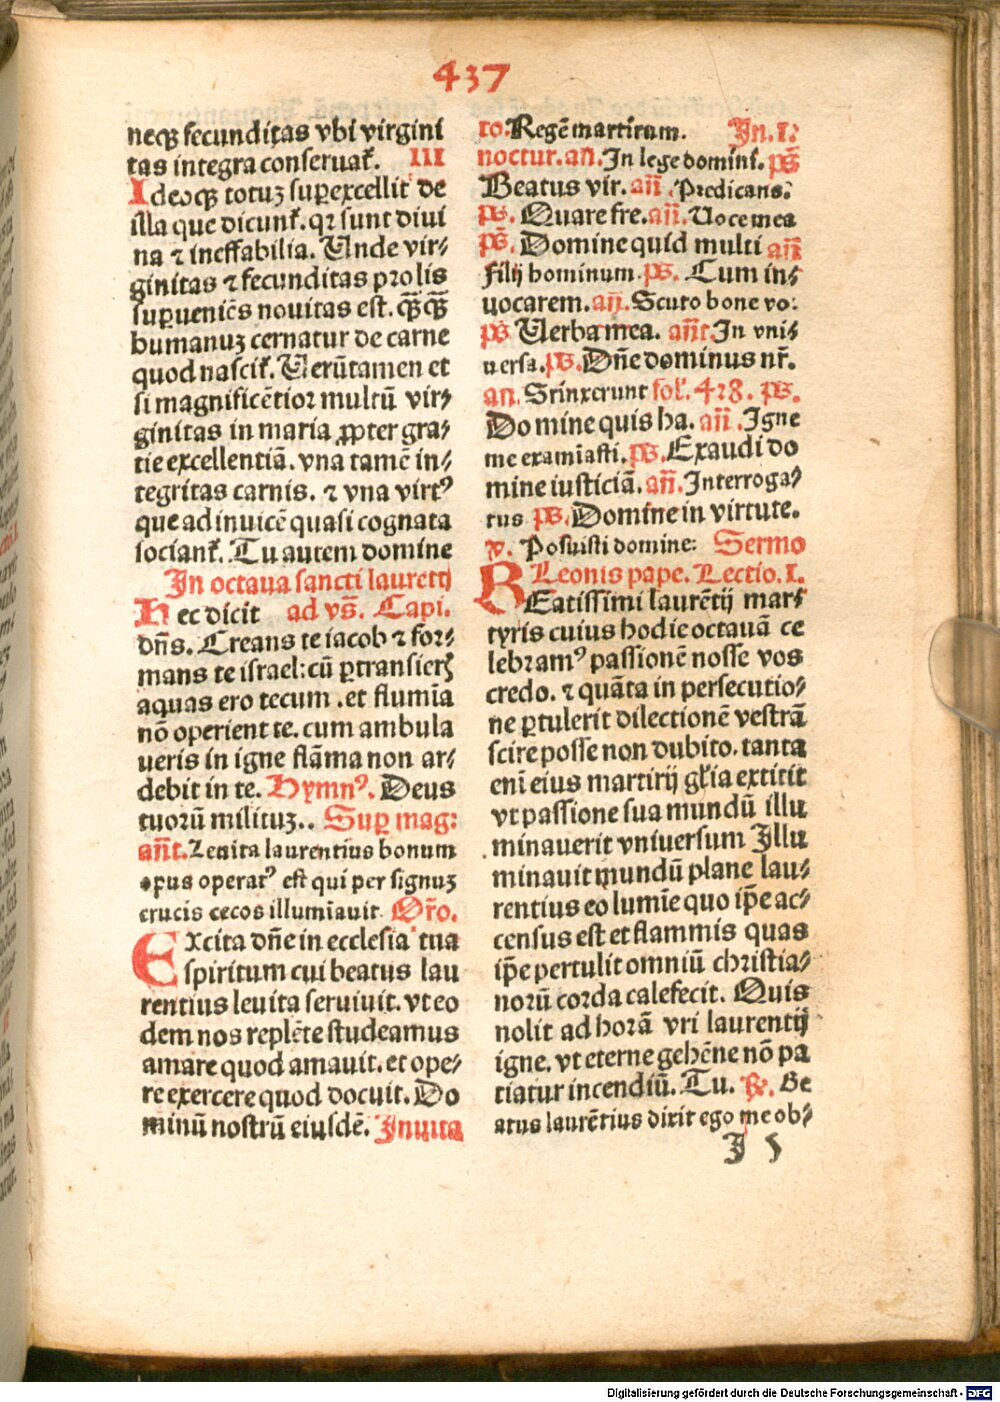 437
neqꝫ fecunditas vbi virgini
tas integra conseruat̃. III
Ideoqꝫ totuꝫ superexcellit de
illa que dicunt̃. qꝛ sunt diui
na ⁊ ineffabilia. Unde vir⸗
ginitas ⁊ fecunditas prolis
suꝑueniẽs nouitas est. qꝫ̃qꝫ̃
humanuꝫ cernatur de carne
quod nascit̃. Uerũtamen et
si magnificẽtioꝛ multũ vir⸗
ginitas in maria ꝓpter gra⸗
tie excellentiã. vna tamẽ in⸗
tegritas carnis. ⁊ vna virtꝰ
que ad inuicẽ quasi cognata
sociant̃. Tu autem domine
In octaua sancti laurẽtij
Hec dicit ad vs̃. Capi.
dñs. Creans te iacob ⁊ for⸗
mans te israel: cũ ꝑtransieris
aquas ero tecum. et flumĩa
nõ operient te. cum ambula
ueris in igne flãma non ar⸗
debit in te. Hymnꝰ. Deus
tuorũ milituꝫ.. Suꝑ mag:
añt. Leuita laurentius bonum
opus operatꝰ est qui per signuꝫ
crucis cecos illumĩauit. Oꝛ̃o.
Excita dñe in ecclesia tua
spiritum cui beatus lau
rentius leuita seruiuit. vt eo
dem nos replẽte studeamus
amare quod amauit. et ope⸗
re exercere quod docuit. Do
minũ nostrũ eiusdẽ. Inuita
to. Regẽ martirum. In. I.
noctur. añ. In lege domini. ps̃
Beatus vir. añ. Predicans.
ps̃. Quare fre. añ. Uoce mea
ps̃. Domine quid multi añ
Filij hominum. ps̃. Cum in⸗
uocarem. añ. Scuto bone vo.
ps̃ Uerba mea. añt. In vni⸗
uersa. ps̃. Dñe dominus nr̃.
an. Strinxerunt fol. 428. ps̃.
Domine quis ha. añ. Igne
me examĩasti. ps̃. Exaudi do
mine iusticiã. añ. Interroga⸗
tus ps̃. Domine in virtute.
v̷. Posuisti domine. Sermo
Leonis pape. Lectio. I.
BEatissimi laurẽtij mar⸗
tyris cuius hodie octauã ce
lebramꝰ passionẽ nosse vos
credo. ⁊ quãta in persecutio⸗
ne ꝑtulerit dilectionẽ vestrã
scire posse non dubito. tanta
eni eius martirij glĩa extitit
vt passione sua mundũ illu
minauerit vniuersum Illu
minauit mundũ plane lau⸗
rentius eo lumĩe quo ip̃e ac⸗
census est et flammis quas
ip̃e pertulit omniũ christia⸗
norũ corda calefecit. Quis
nolit ad horã vri laurentij
igne. vt eterne gehẽne nõ pa
tiatur incendiũ. Tu. ℞. Be
atus laurẽtius dixit ego me ob⸗
I 5
Digitalisierung gefördert durch die Deutsche Forschungsgemeinschaft - DFG